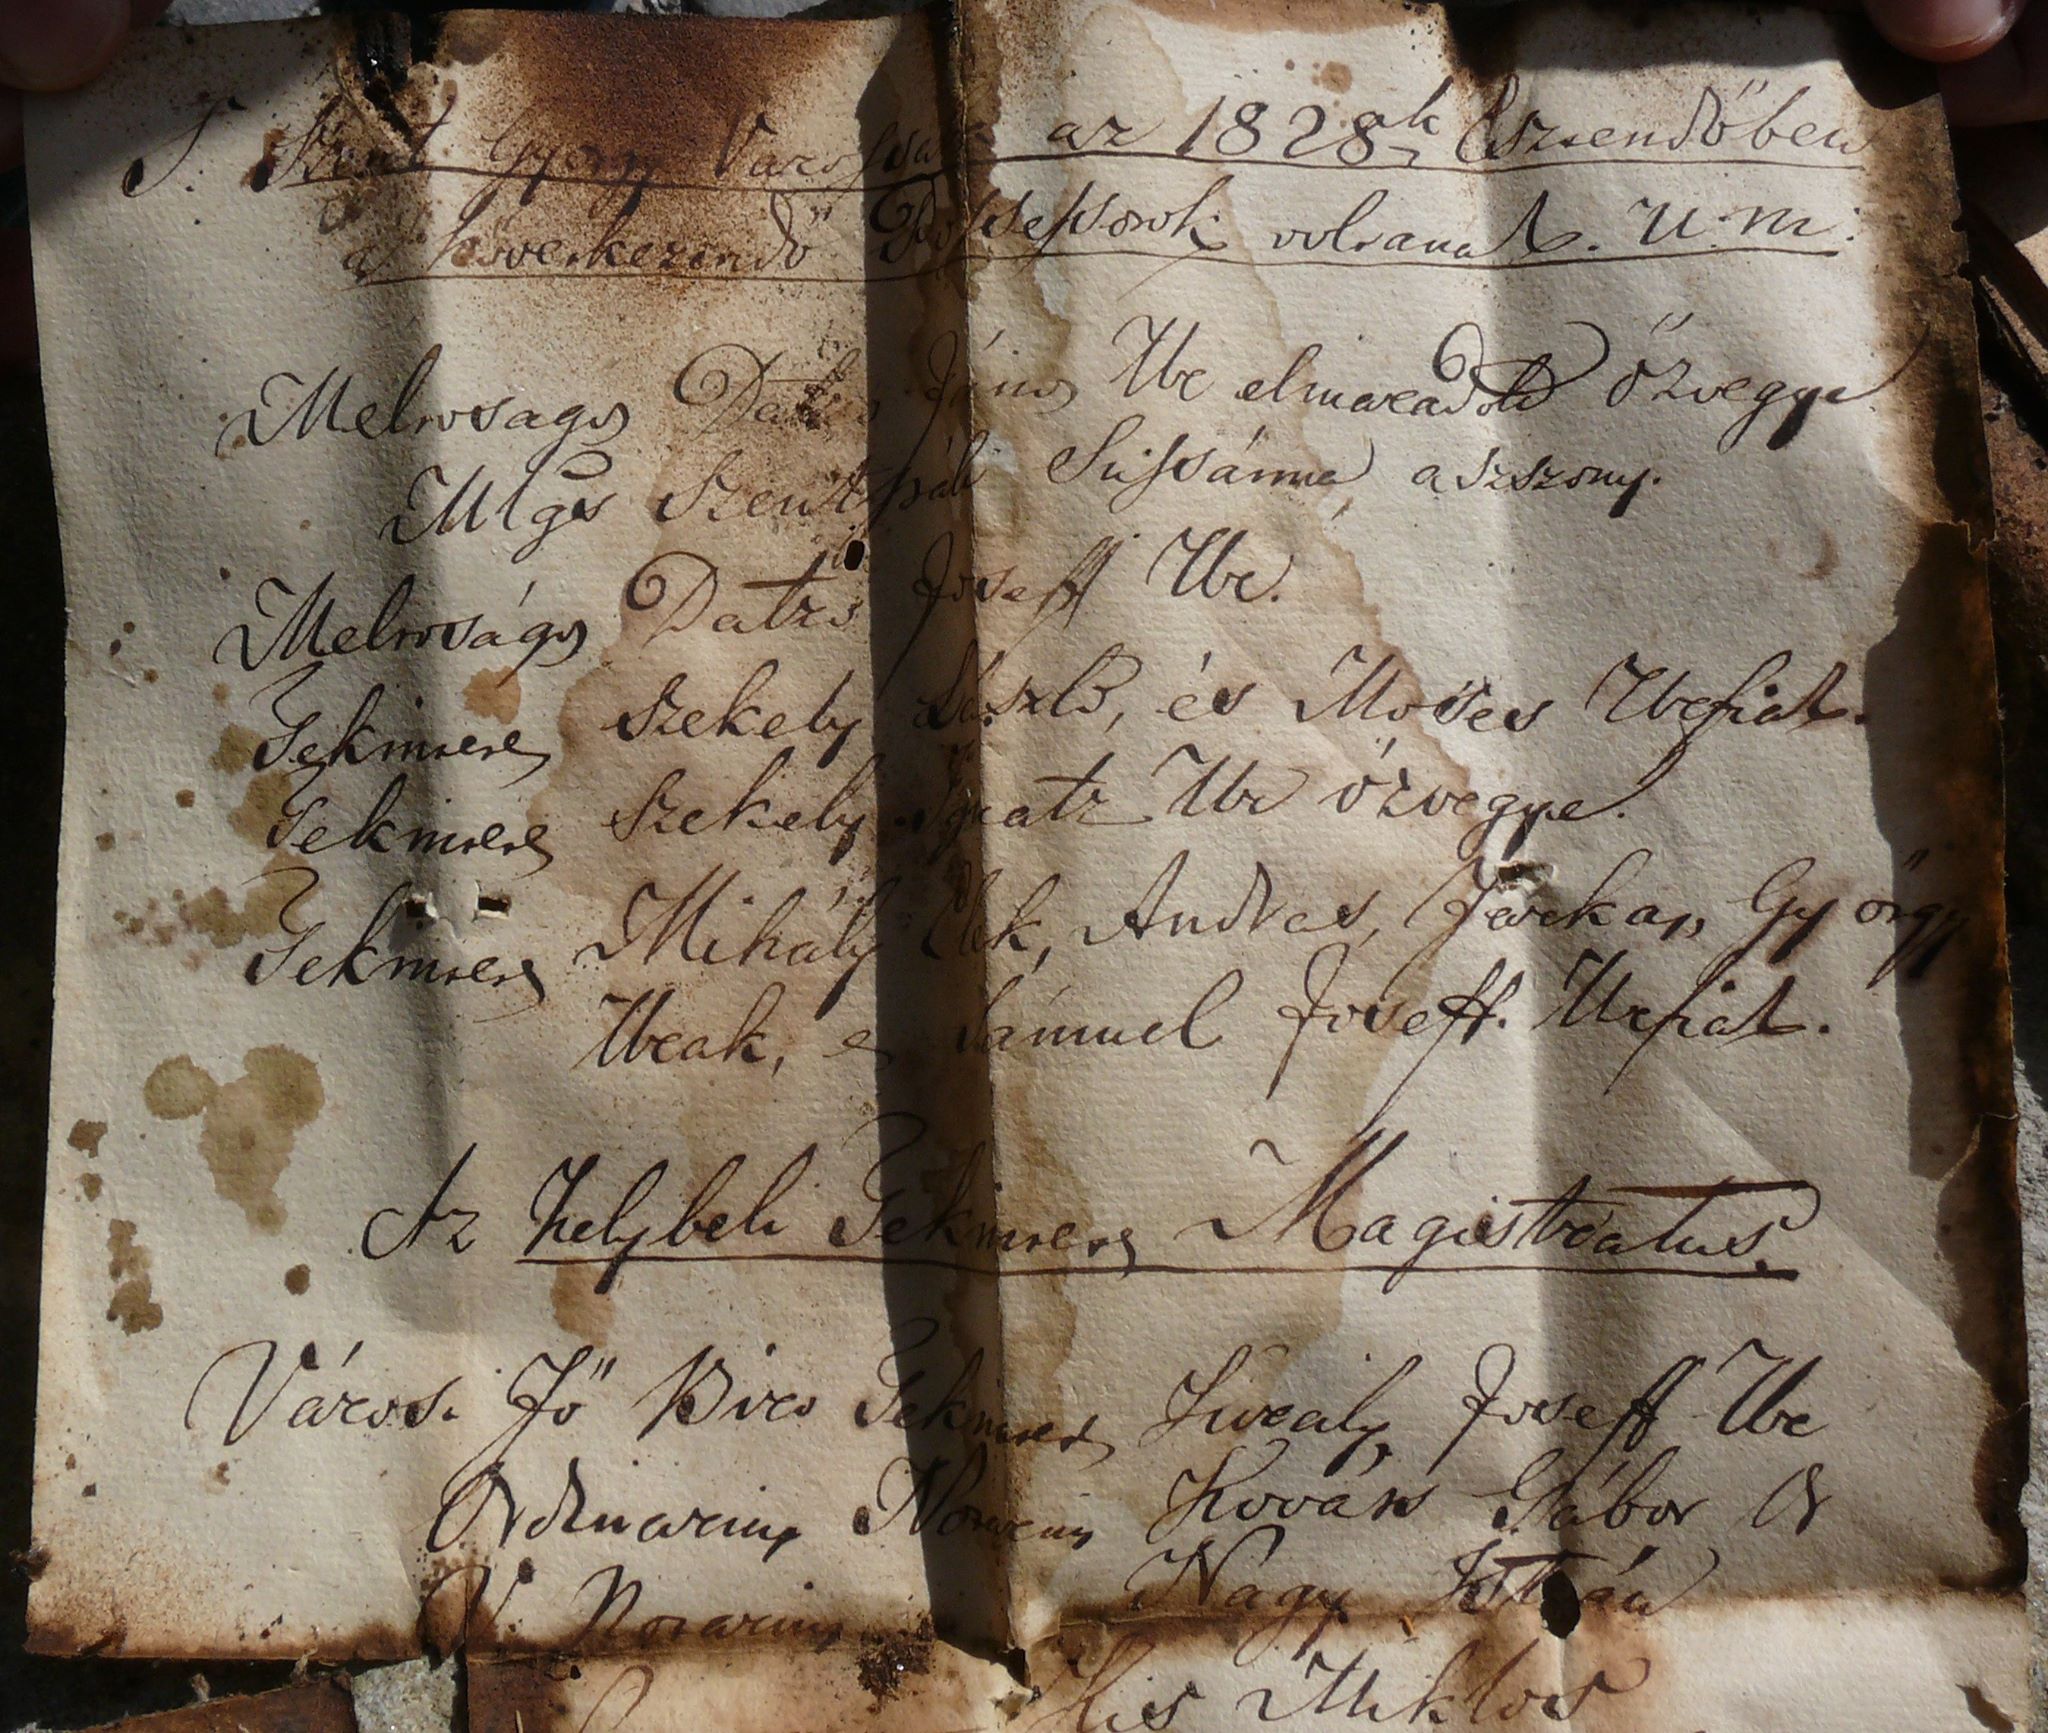 S. Szent György Varossa az 1828ik Esztendőben
a következendő Possessorok voltanak. U. m.
Meltosagos Datzo János Ur elmaradott özvegye
Mlgs Szentpáli Susánna aszszony.
Meltoságos Datzo Joseff Ur.
Tekintetes Szekely László, és Moses Urfiak.
Tekintetes Szekely Ignatz Ur özvegye.
Tekintetes Mihály Elek, Andras, György
Urak, es Sámuel Joseff Urfiak.
Az helybeli Tekintetes Magistratus.
Város. Fő Biro Tekintetes Király Joseff Ur
Ordinarius Notarius Kováts Gábor Ur
V. Notarius Nagy István
Kis Miklos